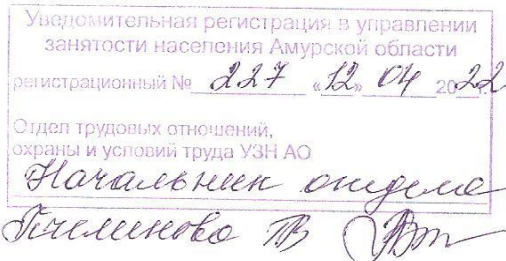 Уведомительная регистрация в управлении
занятости населения Амурской области
регистрационный № 227 «12» 04 2022 г.
Отдел трудовых отношений,
охраны и условий труда УЗН АО
Начальник отдела
ТВ